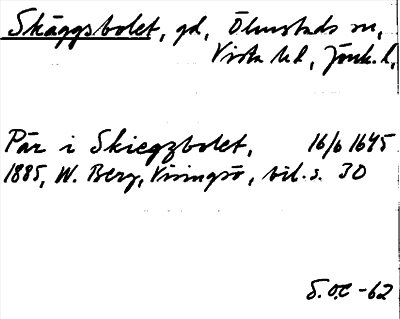 Skäggsbolet, gd, Ölmstads sn,
Vista hd, Jönk. l.
Pär i Skiegzbolet, 16/6 1645
1885, W. Berg, Visingsö, bil. s. 30
S.O.E -62